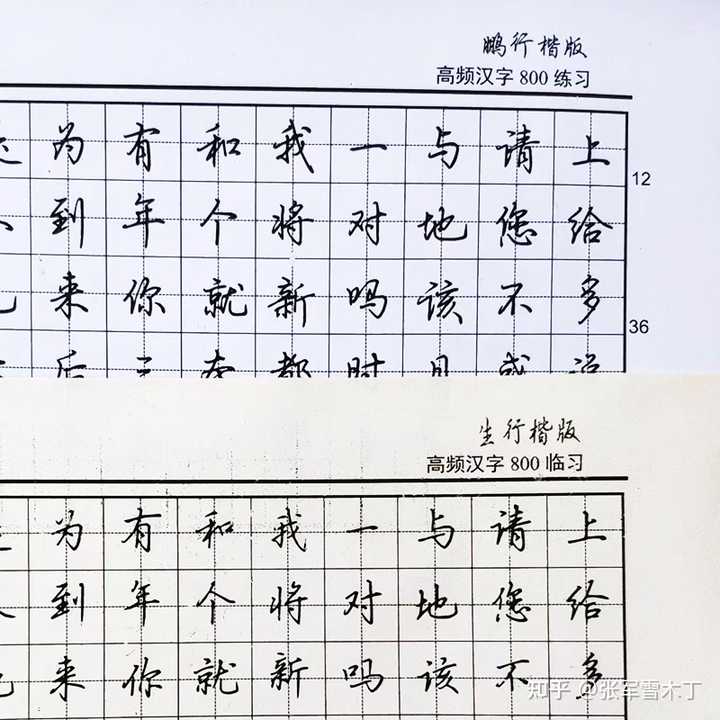 鹏行楷版
高频汉字 800 练习
为有和我一与请上
12
到年个将对地您给
来你就新吗该不多
36
生行楷版
高频汉字 800 临习
为有和我一与请上
到年个将对地您给
来你就新吗该不多
知乎 @张军雪木丁